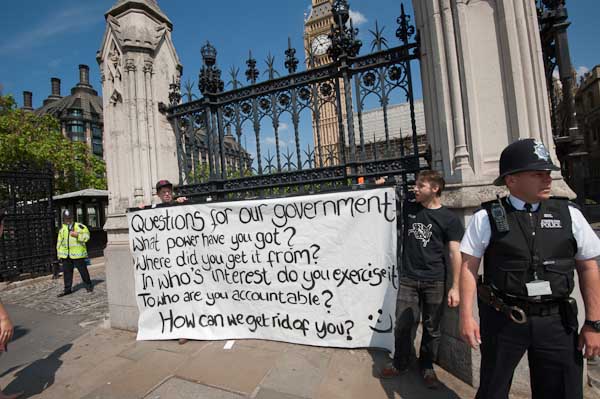 Questions for our government
What power have you got?
Where did you get it from?
In who's interest do you exercise it
To who are you accountable?
How can we get rid of you? :)
POLICE